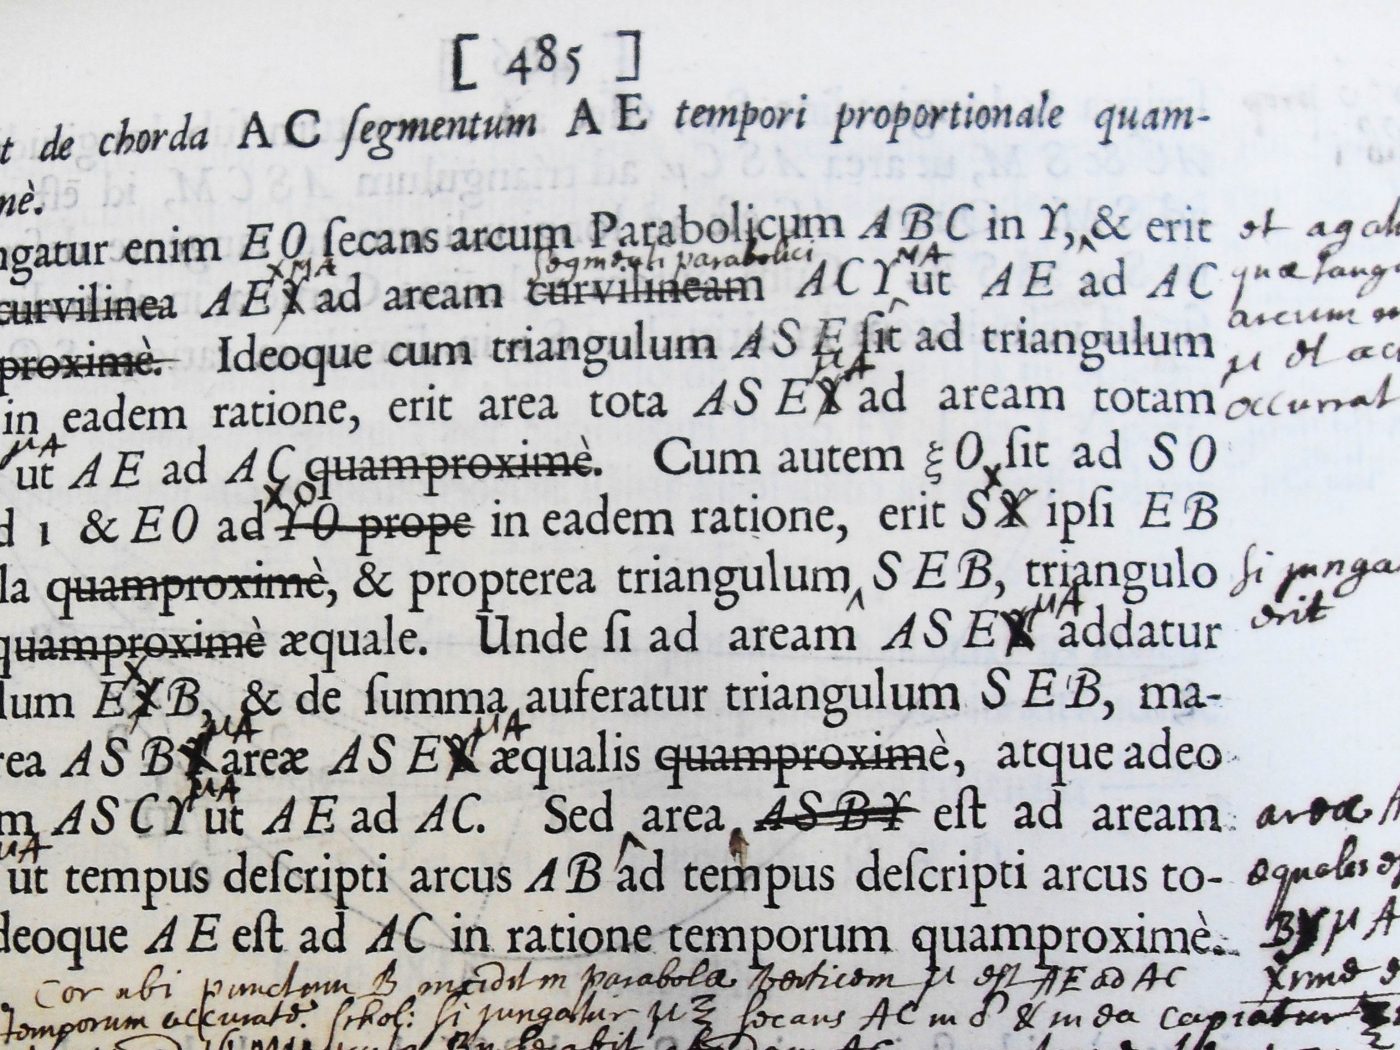 [ 485 ]
t de chorda AC ſegmentum AE tempori proportionale quam-
mè.
ngatur enim EO ſecans arcum Parabolicum ABC in Y, & erit
et ag
XμA
ſegmenti parabolici
μA
curvilinea AEX ad aream curvilineam ACY ut AE ad AC
quæ tang
arcum
proximè. Ideoque cum triangulum ASE ſit ad triangulum
μ et
μA
in eadem ratione, erit area tota ASEX ad aream totam
occurrat
μA
ut AE ad AC quamproximè. Cum autem ξO ſit ad SO
XO
X
d 1 & EO ad YO prope in eadem ratione, erit SX ipſi EB
la quamproximè, & propterea triangulum SEB, triangulo
ſi junga
erit
μA
quamproximè æquale. Unde ſi ad aream ASEX addatur
X
lum EYB, & de ſumma auferatur triangulum SEB, ma-
μA
μA
rea ASBX areæ ASEX æqualis quamproximè, atque adeo
μA
m ASCY ut AE ad AC. Sed area ASBY eſt ad aream
area A
μA
ut tempus deſcripti arcus AB ad tempus deſcripti arcus to-
æqualis
deoque AE eſt ad AC in ratione temporum quamproximè.
μA
Cor ubi punctum B incidit in parabolæ verticem μ est AE ad AC
temporum accurate. Schol: Si jungatur μξ secans AC in δ & in ea capiatur